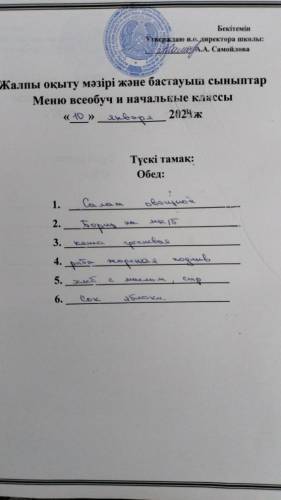 Бекітемін
Утверждаю и.о. директора школы:
А.А. Самойлова
Жалпы оқыту мәзірі және бастауыш сыныптар
Меню всеобуч и начальные классы
« 10 » января 2024ж
Түскі тамақ:
Обед:
1. Салат овощной
2. Борщ на мк/б
3. каша гречневая
4. рыба жареная подлив
5. хлеб с маслом, сыр
6. Сок яблоки